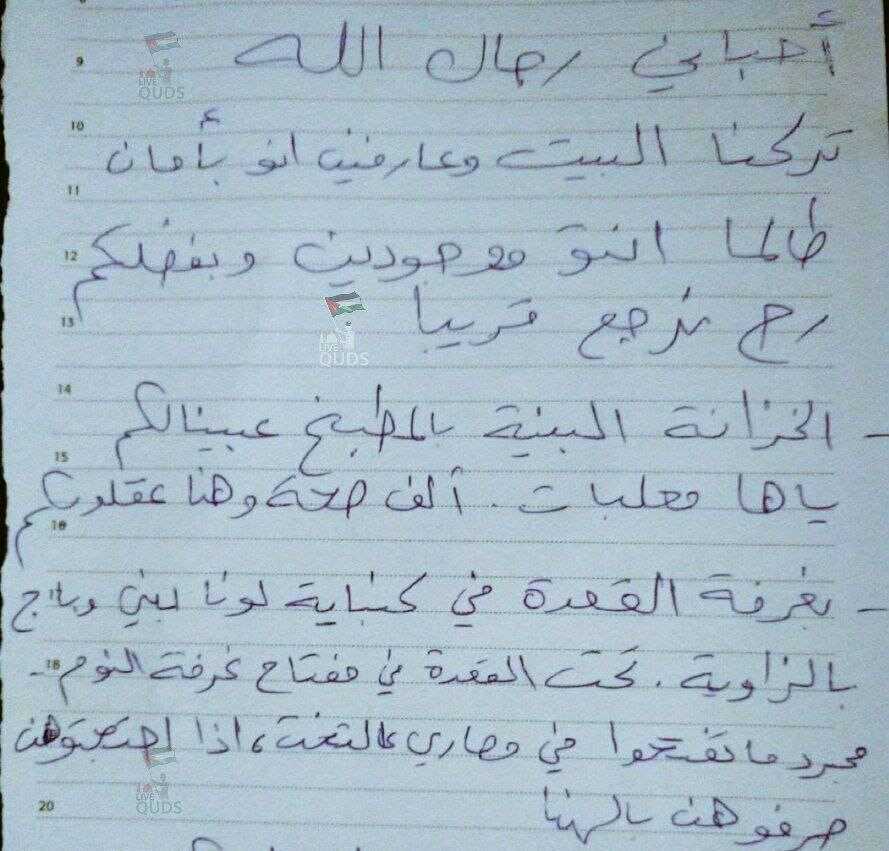 أحبابي رجال الله
تركنا البيت وعارفين انو بأمان
طالما انتو موجودين وبفضلكم
رح نرجع قريبا
- الخزانة البنية بالمطبخ عبينالكم
ياها معلبات. ألف صحة وهنا عقلوبكم
- بغرفة القعدة في كنباية لونا بني وباج
بالزاوية. تحت القعدة في مفتاح غرفة النوم -
مجرد ما تفتحوا في مصاري عالتخت، اذا احتجتوهن
صرفوهن بالهنا
I LIVE QUDS
I LIVE QUDS
I LIVE QUDS
9
10
11
12
13
14
15
16
18
20